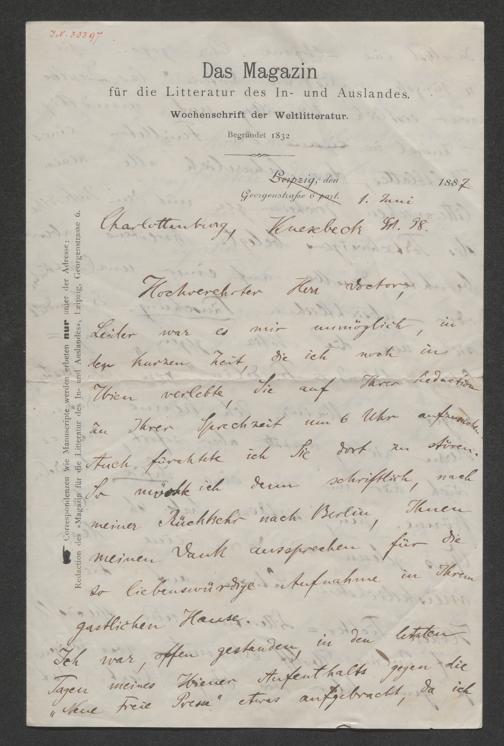 J.N. 33397
Das Magazin
für die Litteratur des In- und Auslandes.
Wochenschrift der Weltlitteratur.
Begründet 1832
Leipzig, den 1887
Georgenstraße 6 part. 1. Juni
Charlottenburg, Knesebeck St.
Hochverehrter Herr Doctor,
Leider war es mir unmöglich, in
der kurzen Zeit, die ich noch in
Wien verlebte, Sie auf Ihrer Redaction
zu Ihrer Sprechzeit um 6 Uhr aufzusuchen.
Auch fürchtete ich Sie dort zu stören.
So möchte ich denn schriftlich, nach
meiner Rückkehr nach Berlin, Ihnen
meinen Dank aussprechen für die
so liebenswürdige Aufnahme in Ihrem
gastlichen Hause.
Ich war, offen gestanden, in den letzten
Tagen meines Wiener Aufenthalts gegen die
„Neue Freie Presse" etwas aufgebracht, da ich
Correspondenzen wie Manuscripte werden erbeten nur unter der Adresse:
Redaction des »Magazin für die Litteratur des In- und Auslandes«, Leipzig, Georgenstrasse 6.